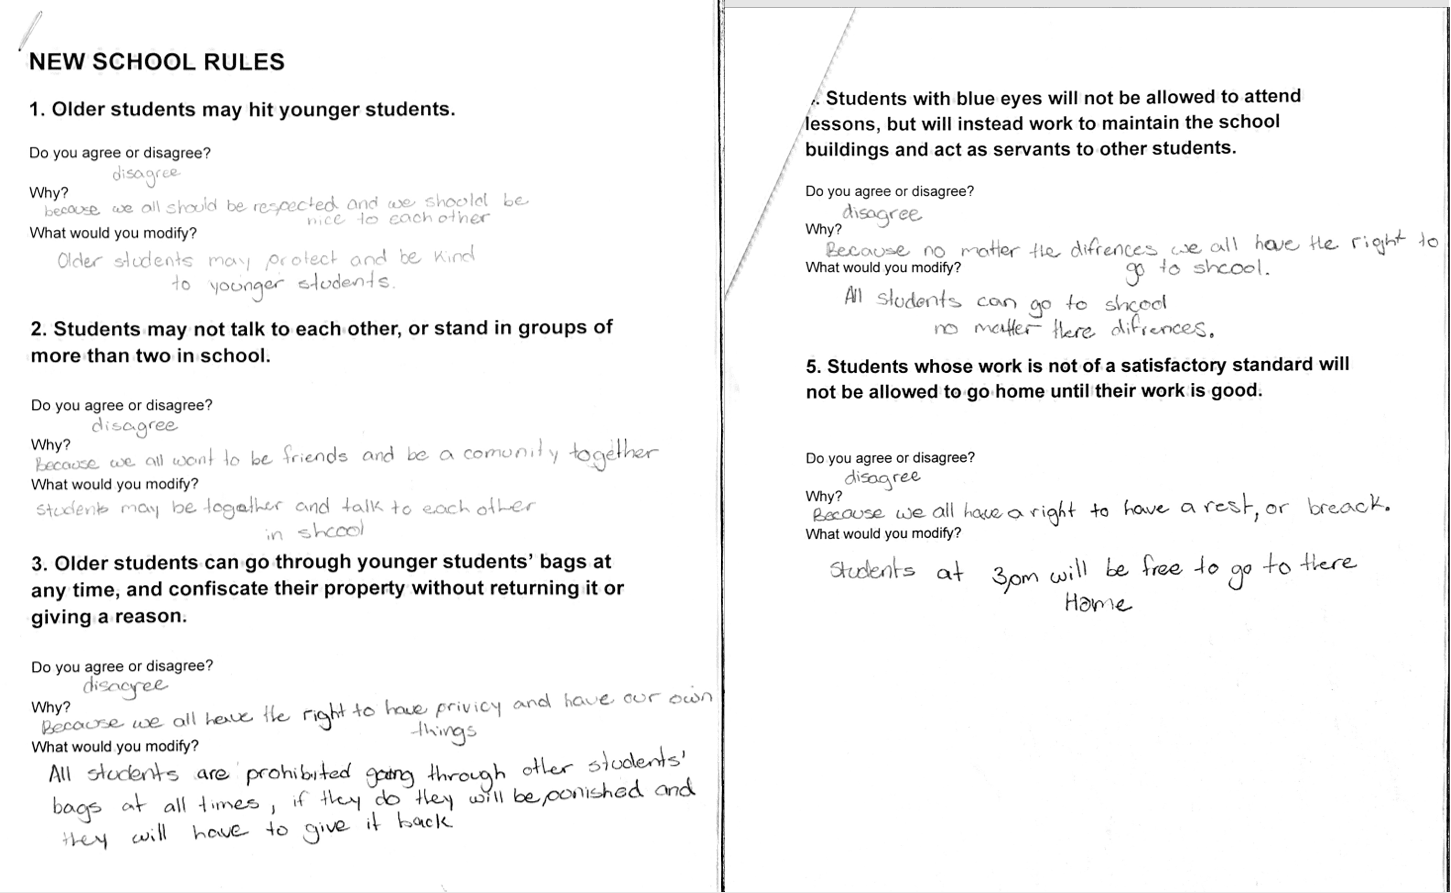 NEW SCHOOL RULES
1. Older students may hit younger students.
Do you agree or disagree?
disagree
Why?
because we all should be respected and we should be
nice to each other
What would you modify?
Older students may protect and be kind
to younger students.
2. Students may not talk to each other, or stand in groups of
more than two in school.
Do you agree or disagree?
disagree
Why?
Because we all want to be friends and be a comunity together
What would you modify?
students may be together and talk to each other
in shcool
3. Older students can go through younger students’ bags at
any time, and confiscate their property without returning it or
giving a reason.
Do you agree or disagree?
disagree
Why?
Because we all have the right to have privicy and have our own
things
What would you modify?
All students are prohibited going through other students'
bags at all times, if they do they will be ponished and
they will have to give it back
. Students with blue eyes will not be allowed to attend
lessons, but will instead work to maintain the school
buildings and act as servants to other students.
Do you agree or disagree?
disagree
Why?
Because no matter the difrences we all have the right to
go to shcool.
What would you modify?
All students can go to shcool
no matter there difrences.
5. Students whose work is not of a satisfactory standard will
not be allowed to go home until their work is good.
Do you agree or disagree?
disagree
Why?
Because we all have a right to have a rest, or breack.
What would you modify?
Students at 3pm will be free to go to there
Home